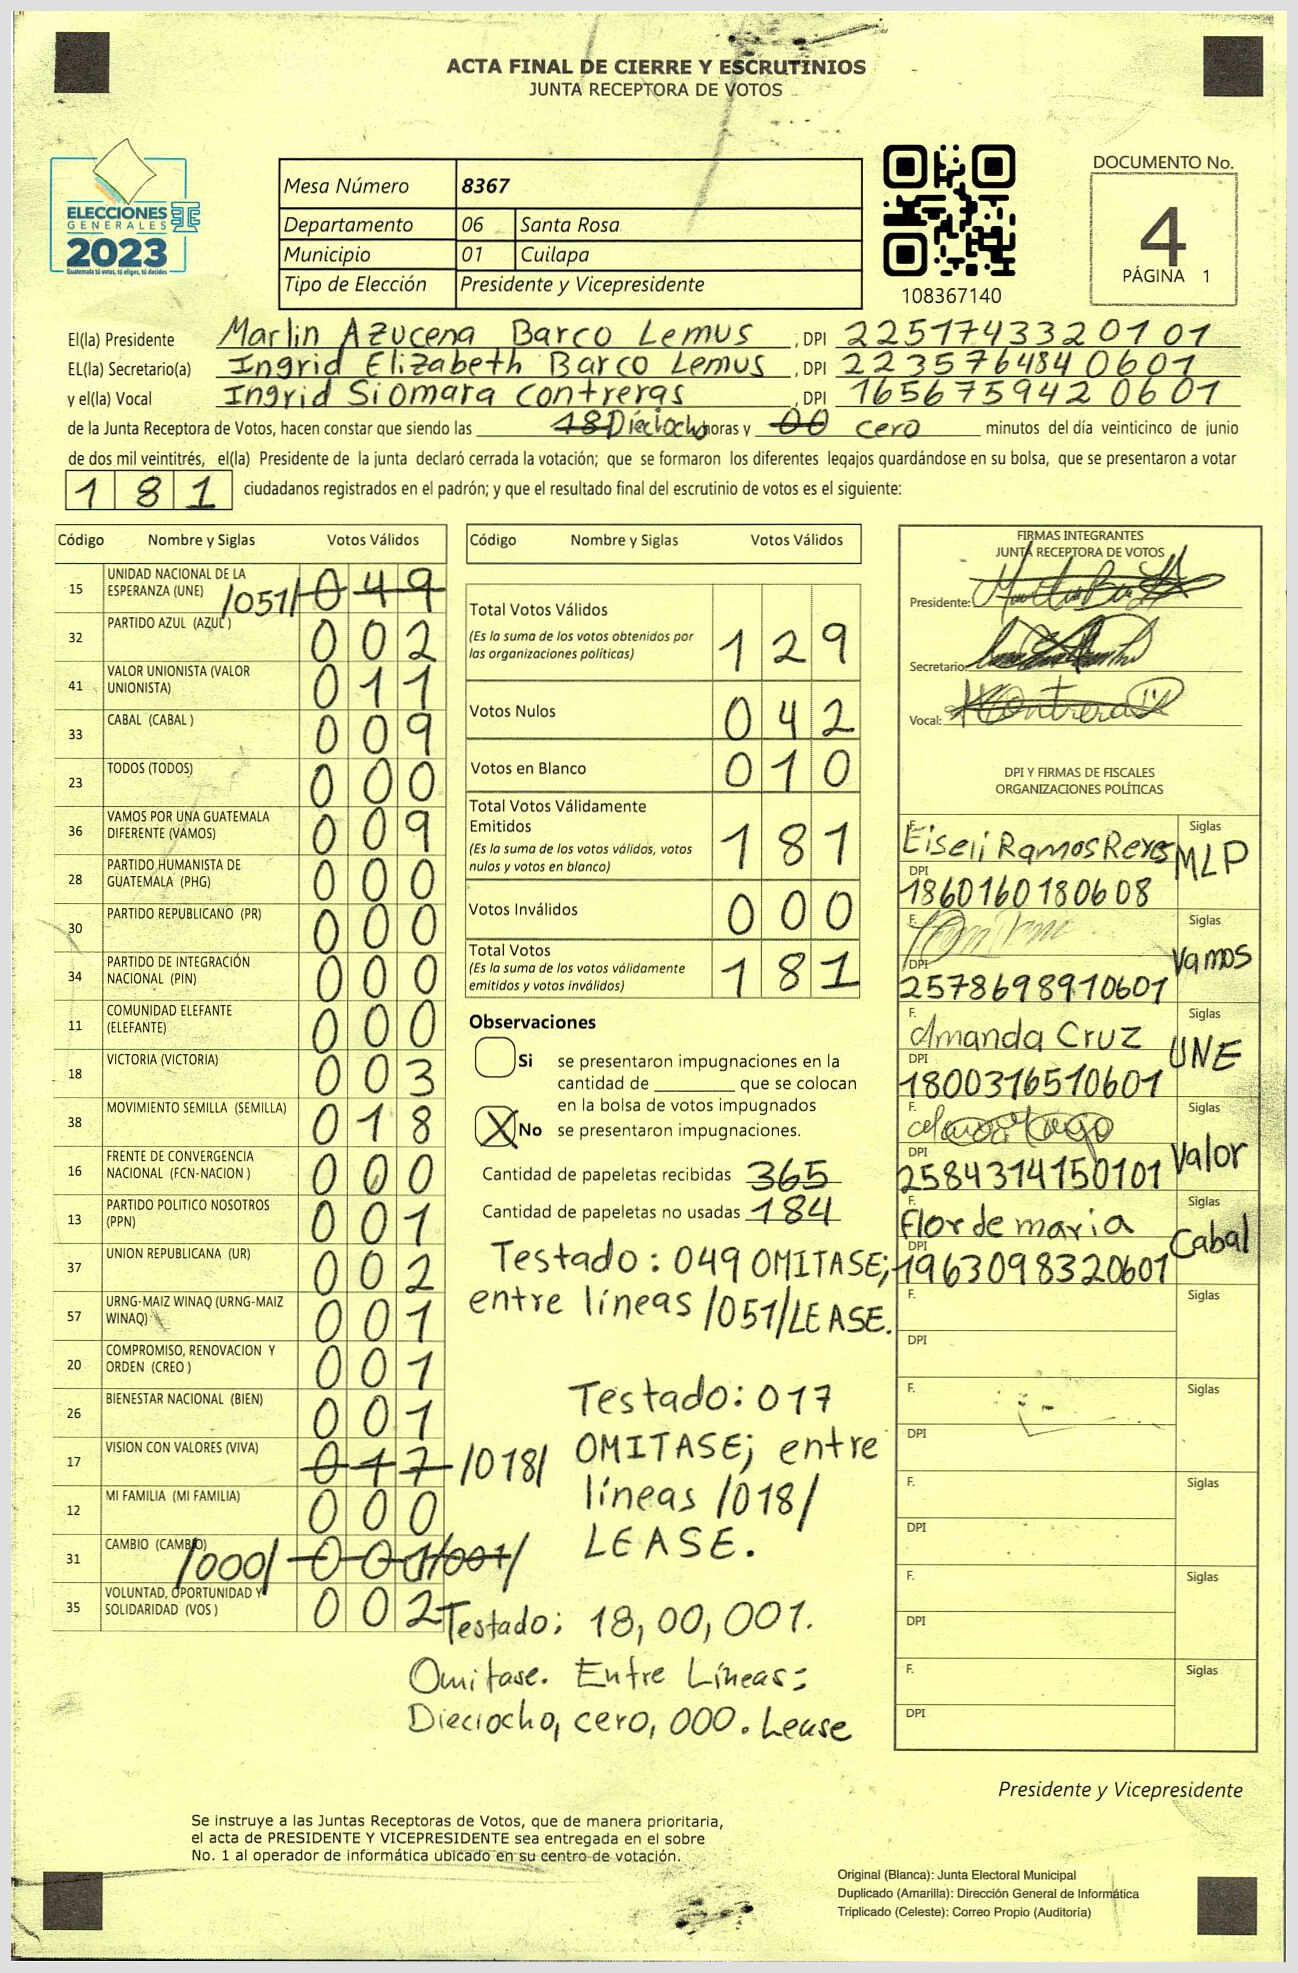 ACTA FINAL DE CIERRE Y ESCRUTINIOS
JUNTA RECEPTORA DE VOTOS
ELECCIONES
GENERALES
2023
Guatemala tú votas, tú eliges, tú decides
Mesa Número 8367
Departamento 06 Santa Rosa
Municipio 01 Cuilapa
Tipo de Elección Presidente y Vicepresidente
108367140
DOCUMENTO No.
4
PÁGINA 1
El(la) Presidente Marlin Azucena Barco Lemus , DPI 2251743320101
EL(la) Secretario(a) Ingrid Elizabeth Barco Lemus , DPI 2235764840601
y el(la) Vocal Ingrid Siomara Contreras , DPI 1656759420601
de la Junta Receptora de Votos, hacen constar que siendo las 18 Dieciocho horas y 00 cero minutos del día veinticinco de junio
de dos mil veintitrés, el(la) Presidente de la junta declaró cerrada la votación; que se formaron los diferentes legajos guardándose en su bolsa, que se presentaron a votar
181 ciudadanos registrados en el padrón; y que el resultado final del escrutinio de votos es el siguiente:
Código Nombre y Siglas Votos Válidos
15 UNIDAD NACIONAL DE LA
ESPERANZA (UNE) /051/ 049
32 PARTIDO AZUL (AZUL ) 002
41 VALOR UNIONISTA (VALOR
UNIONISTA) 011
33 CABAL (CABAL ) 009
23 TODOS (TODOS) 000
36 VAMOS POR UNA GUATEMALA
DIFERENTE (VAMOS) 009
28 PARTIDO HUMANISTA DE
GUATEMALA (PHG) 000
30 PARTIDO REPUBLICANO (PR) 000
34 PARTIDO DE INTEGRACIÓN
NACIONAL (PIN) 000
11 COMUNIDAD ELEFANTE
(ELEFANTE) 000
18 VICTORIA (VICTORIA) 003
38 MOVIMIENTO SEMILLA (SEMILLA) 018
16 FRENTE DE CONVERGENCIA
NACIONAL (FCN-NACION ) 000
13 PARTIDO POLITICO NOSOTROS
(PPN) 001
37 UNION REPUBLICANA (UR) 002
57 URNG-MAIZ WINAQ (URNG-MAIZ
WINAQ) 001
20 COMPROMISO, RENOVACION Y
ORDEN (CREO ) 001
26 BIENESTAR NACIONAL (BIEN) 001
17 VISION CON VALORES (VIVA) 017 /018/
12 MI FAMILIA (MI FAMILIA) 000
31 CAMBIO (CAMBIO) /000/ 001 /001/
35 VOLUNTAD, OPORTUNIDAD Y
SOLIDARIDAD (VOS ) 002
Código Nombre y Siglas Votos Válidos
Total Votos Válidos
(Es la suma de los votos obtenidos por
las organizaciones políticas) 129
Votos Nulos 042
Votos en Blanco 010
Total Votos Válidamente
Emitidos
(Es la suma de los votos válidos, votos
nulos y votos en blanco) 181
Votos Inválidos 000
Total Votos
(Es la suma de los votos válidamente
emitidos y votos inválidos) 181
Observaciones
Si se presentaron impugnaciones en la
cantidad de ________ que se colocan
en la bolsa de votos impugnados
X No se presentaron impugnaciones.
Cantidad de papeletas recibidas 365
Cantidad de papeletas no usadas 184
Testado: 049 OMITASE;
entre líneas /051/LEASE.
Testado: 017
OMITASE; entre
líneas /018/
LEASE.
Testado: 18, 00, 001.
Omitase. Entre Líneas:
Dieciocho, cero, 000. Lease
FIRMAS INTEGRANTES
JUNTA RECEPTORA DE VOTOS
Presidente:
Secretario:
Vocal: Contreras
DPI Y FIRMAS DE FISCALES
ORGANIZACIONES POLÍTICAS
F. Eiseli Ramos Reyes Siglas MLP
DPI 1860160180608
F. Siglas Vamos
DPI 2578698910601
F. Amanda Cruz Siglas UNE
DPI 1800316510601
F. Siglas Valor
DPI 2584314150101
F. Flor de maria Siglas Cabal
DPI 1963098320601
F. Siglas
DPI
F. Siglas
DPI
F. Siglas
DPI
F. Siglas
DPI
F. Siglas
DPI
Presidente y Vicepresidente
Se instruye a las Juntas Receptoras de Votos, que de manera prioritaria,
el acta de PRESIDENTE Y VICEPRESIDENTE sea entregada en el sobre
No. 1 al operador de informática ubicado en su centro de votación.
Original (Blanca): Junta Electoral Municipal
Duplicado (Amarilla): Dirección General de Informática
Triplicado (Celeste): Correo Propio (Auditoría)